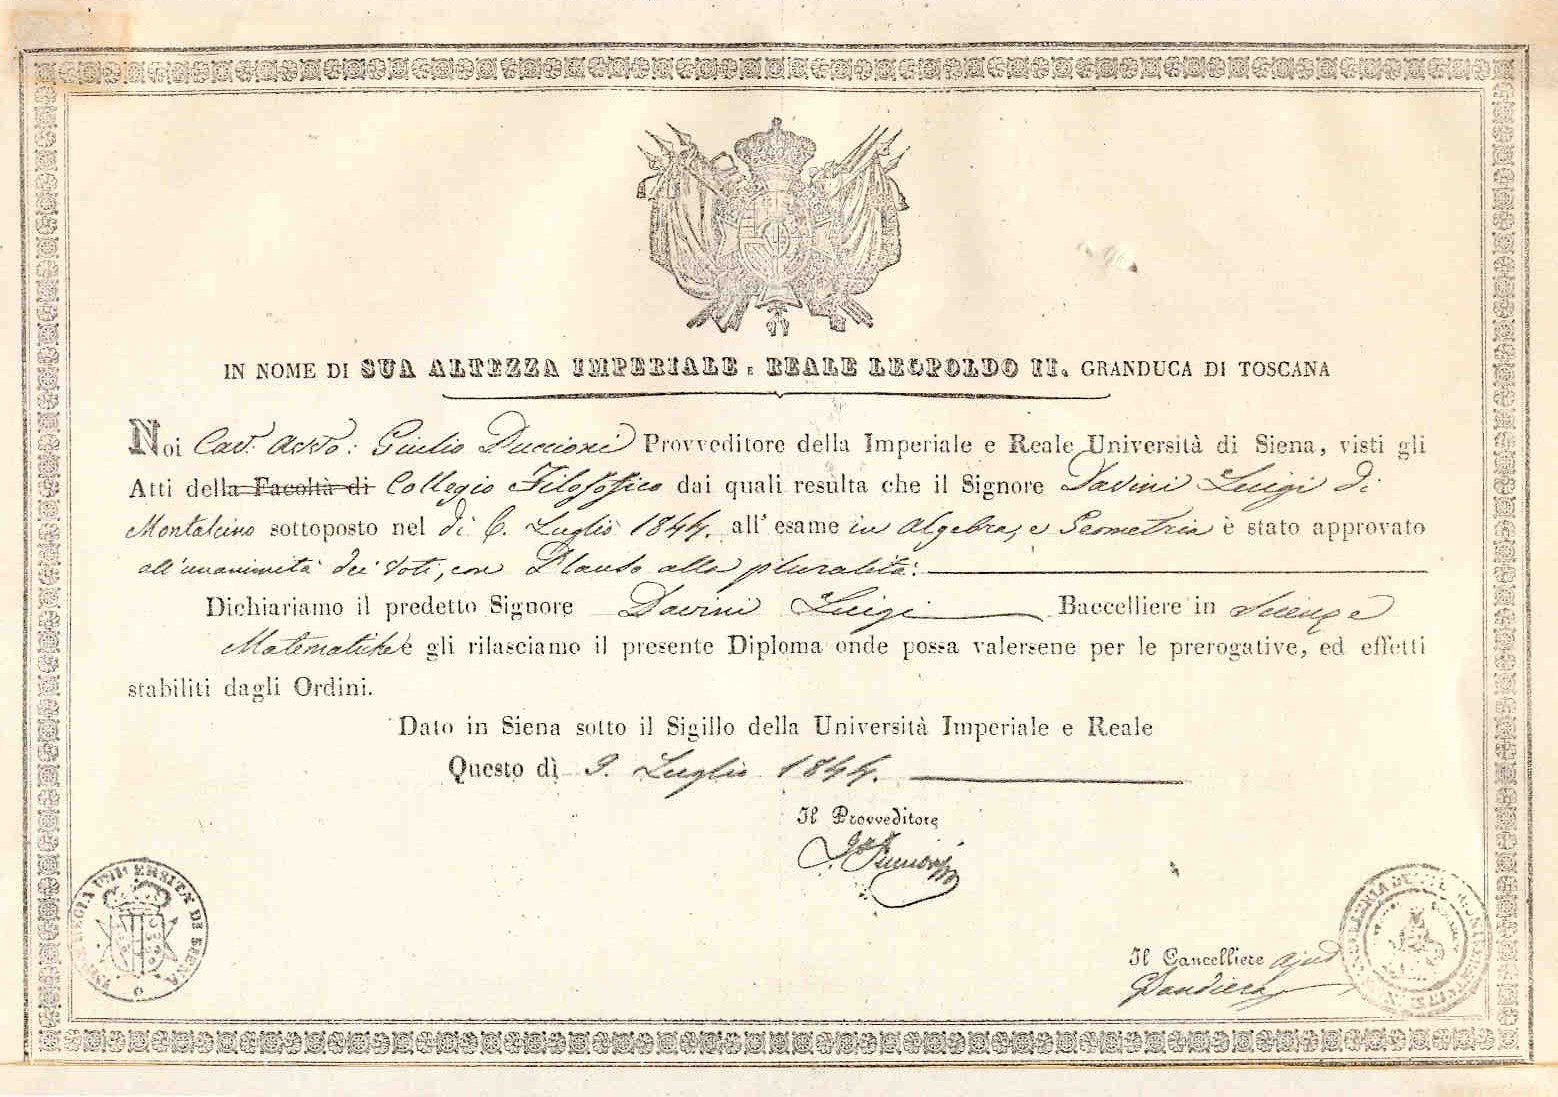 IN NOME DI SUA ALTEZZA IMPERIALE E REALE LEOPOLDO II. GRANDUCA DI TOSCANA
Noi Cav. Avvo: Giulio Puccioni Provveditore della Imperiale e Reale Università di Siena, visti gli
Atti della Facoltà di Collegio Filosofico dai quali resulta che il Signore Davini Luigi di
Montalcino sottoposto nel dì 6. Luglio 1844. all' esame in Algebra, e Geometria è stato approvato
all'unanimità dei Voti, con Plauso alla pluralità.
Dichiariamo il predetto Signore Davini Luigi Baccelliere in Scienze
Matematiche e gli rilasciamo il presente Diploma onde possa valersene per le prerogative, ed effetti
stabiliti dagli Ordini.
Dato in Siena sotto il Sigillo della Università Imperiale e Reale
Questo dì 9. Luglio 1844.
Il Provveditore
Puccioni
REGIA UNIVERSITÀ DI SIENA
Il Cancelliere